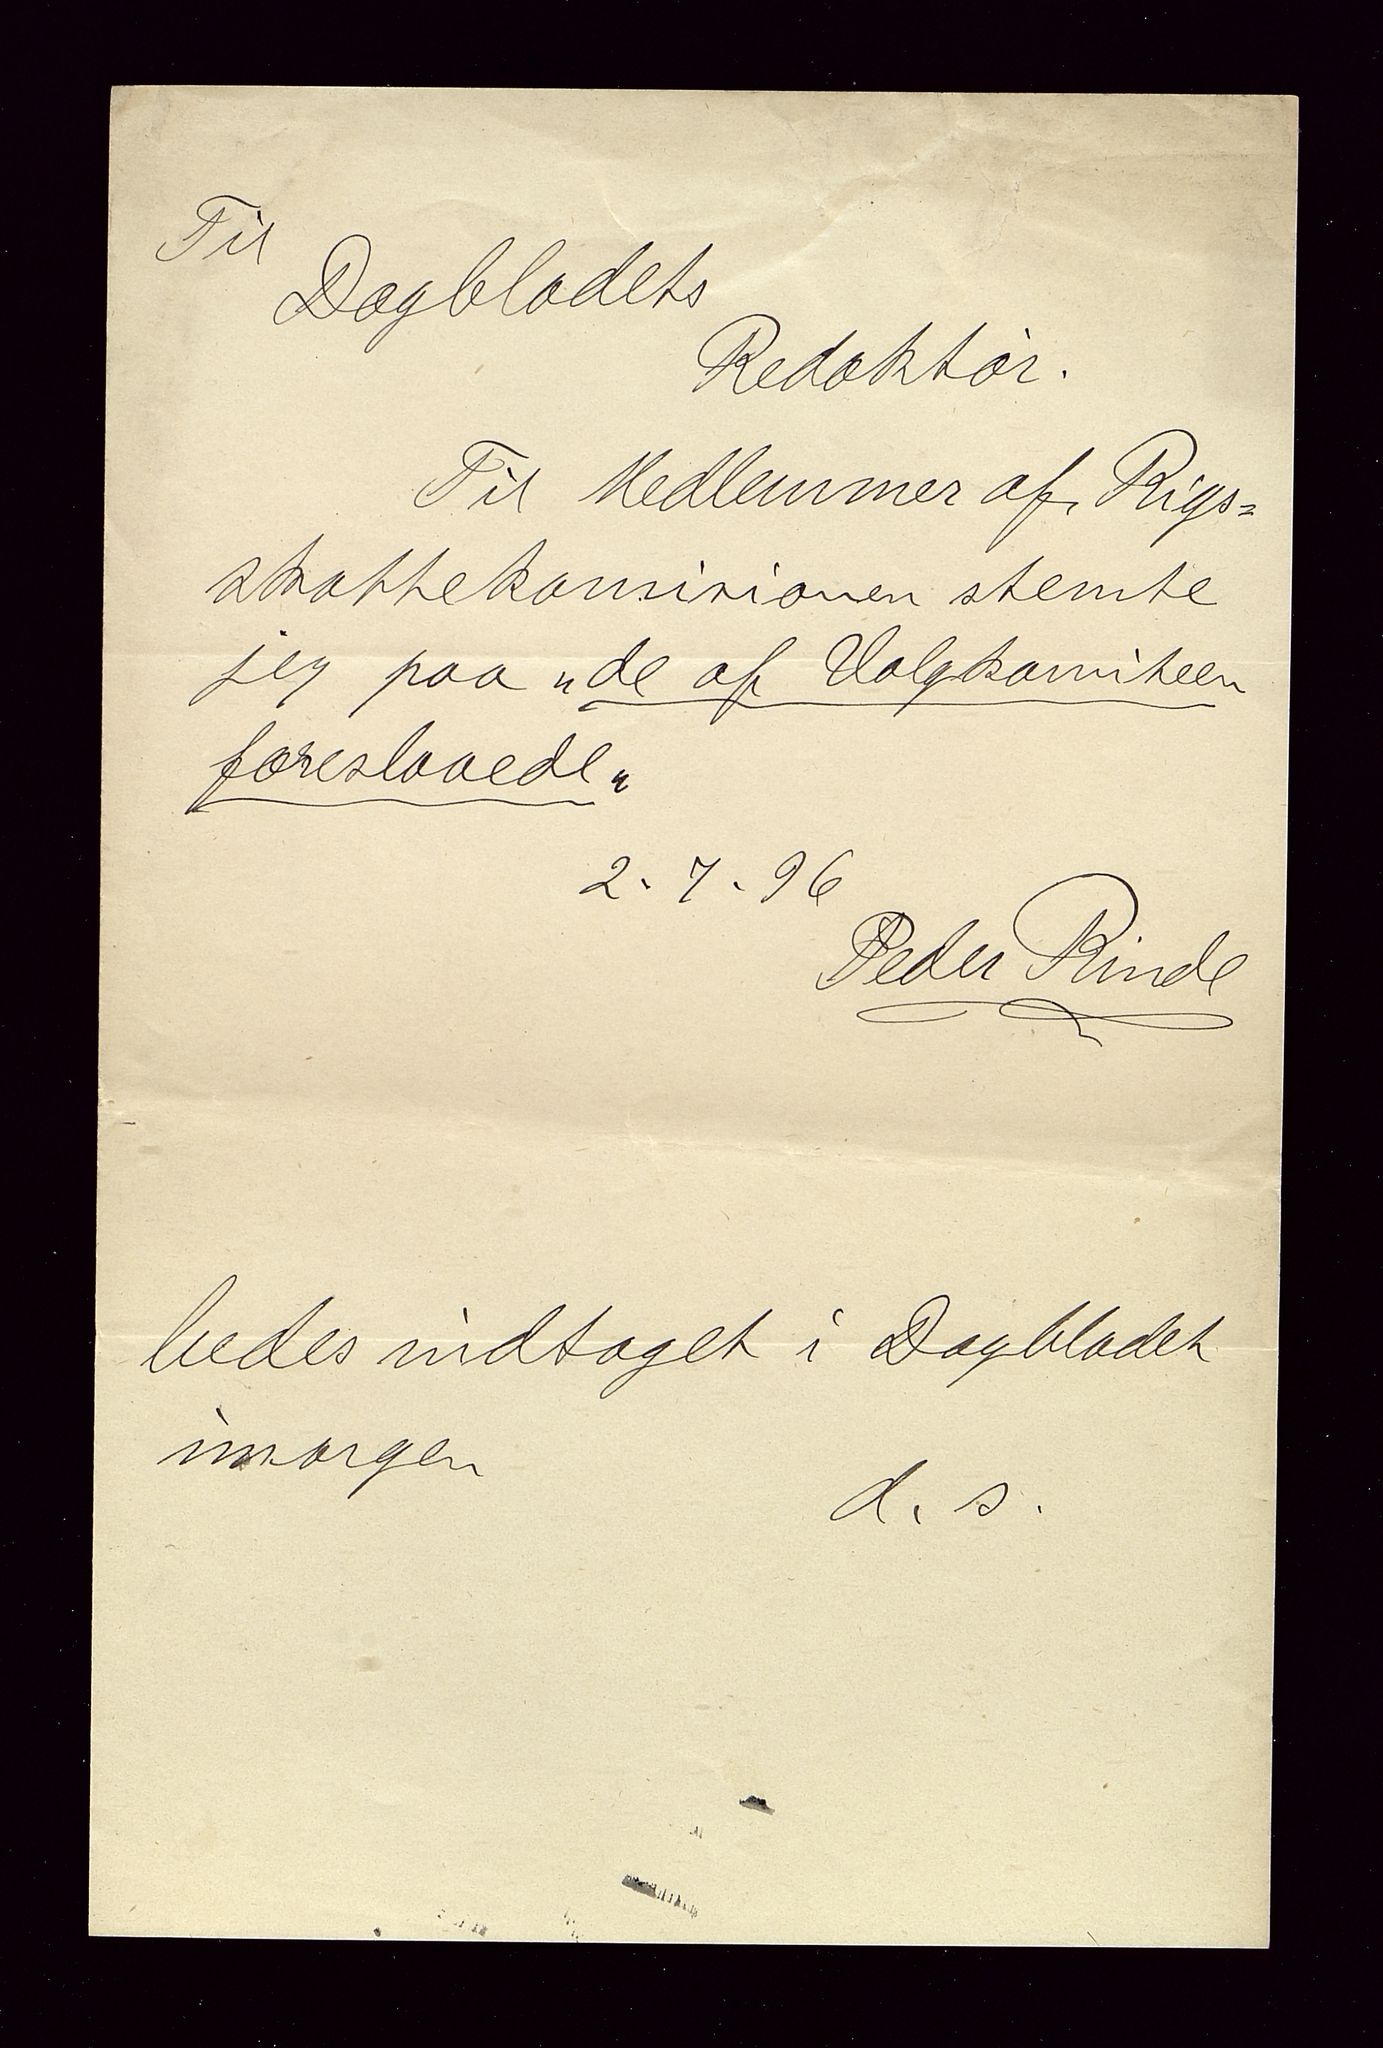 Til
Dagbladets
Redaktør.
Til Medlemmer af Rigs=
skattekomisionen stemte
jeg paa „de af Valgkomiteen
foreslaaede„
2. 7. 96
Peder Rinde
bedes indtaget i Dagbladet
imorgen
d. s.